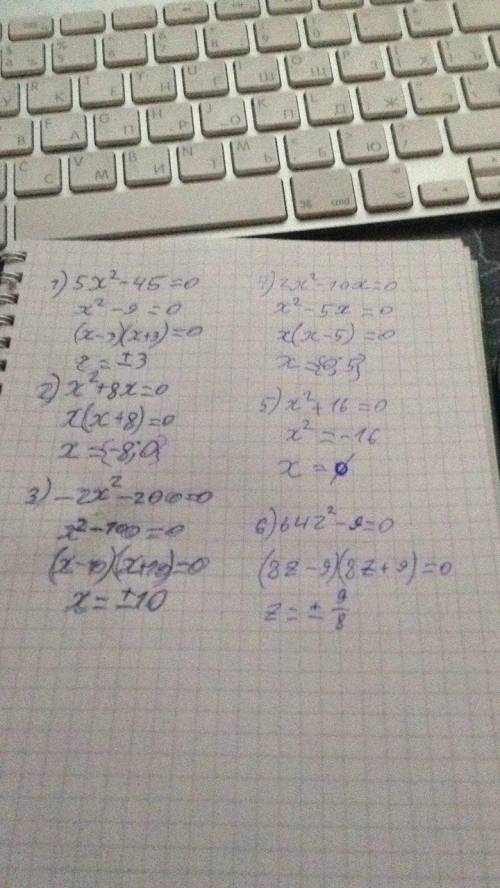 1) 5x²-45=0
x²-9=0
(x-3)(x+3)=0
x=±3
2) x²+8x=0
x(x+8)=0
x={-8;0}
3) -2x²-200=0
x²-100=0
(x-10)(x+10)=0
x=±10
4) 2x²-10x=0
x²-5x=0
x(x-5)=0
x={0;5}
5) x²+16=0
x²=-16
x=∅
6) 64z²-9=0
(8z-9)(8z+9)=0
z=±9/8